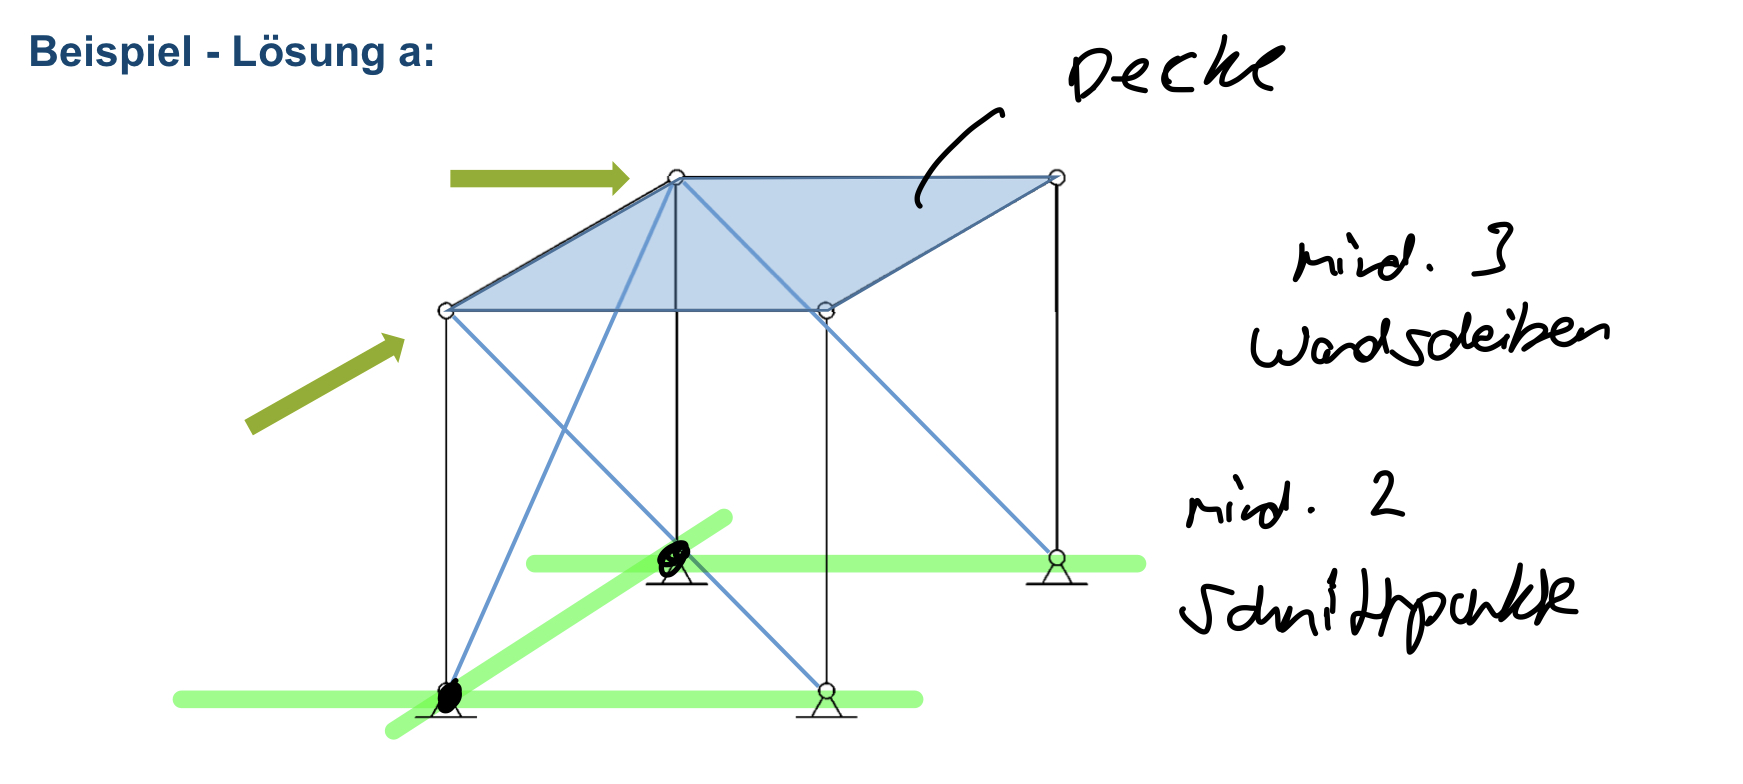 Beispiel - Lösung a:
Decke
mind. 3
Wandscheiben
mind. 2
Schnittpunkte